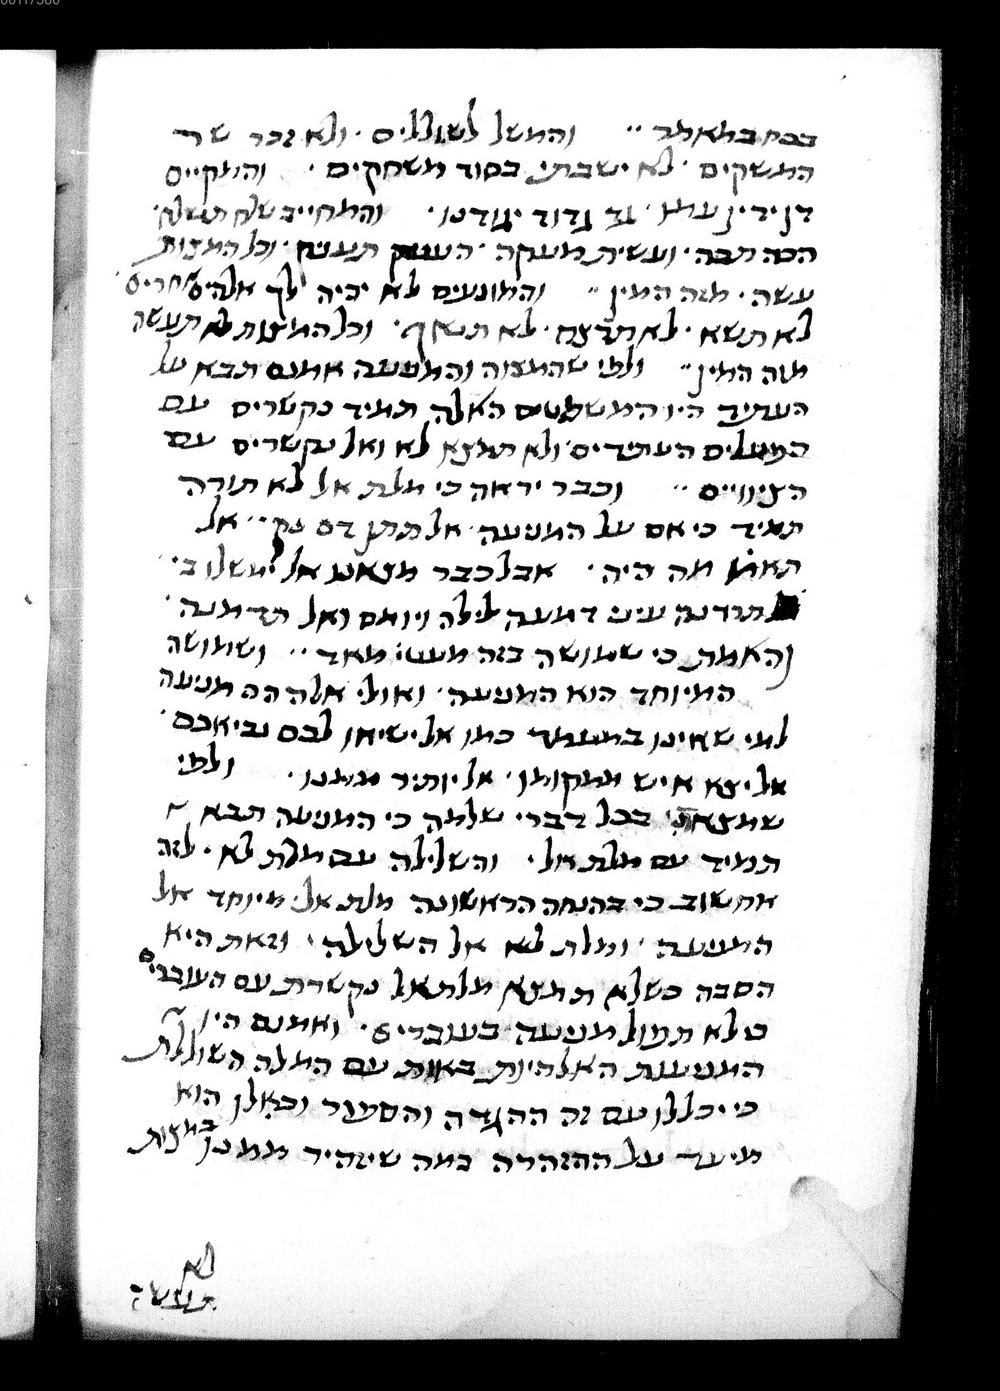 בכח במאמר ׳׳ והמשל לשוללים ׳ ולא זכר שר
המשקים ׳ לא ישבתי בסוד משחקים ׳ והמקיים
דן ידין עמו ׳ גד גדוד יגודנו ׳ והמחייב שלח תשלח ׳
הכה תכה ׳ ועשית מעקה ׳ הענק תעניק ׳ וכל המצות
עשה ׳ מזה המין ׳׳ והמונעים לא יהיה לך אלהים אחרים ׳
לא תשא ׳ לא תרצח ׳ לא תנאף ׳ וכל המצות לא תעשה
מזה המין ׳׳ ולפי שהמצוה והמניעה אמנם תבא על
העתיד היו המשפטים האלה תמיד נקשרים עם
הפעלים העתידים ׳ ולא תמצא לא ואל נקשרים עם
הציוויים ׳׳ וכבר יראה כי מלת אל לא תורה
תמיד כי אם על המניעה ׳ אל תתן דם נקי ׳ אל
תאמר מה היה ׳ אבל כבר מצאנו אל ימשלו בי ׳
תרדנה עיני דמעה לילה ויומם ואל תדמנה ׳
והאמת כי שמושה בזה מעט מאד ׳׳ ושמושה
המיוחד הוא המניעה ׳ ואולי אלה הם מניעה
למי שאינו במעמד כמו אל ישיאו לכם נביאכם ׳
אל יצא איש ממקומו ׳ אל יותיר ממנו ׳ ולפי
שמצאתי בכל דברי שלמה כי המניעה תבא
תמיד עם מלת אל ׳ והשלילה עם מלת לא ׳ לזה
אחשוב כי בהנחה הראשונה מלת אל מיוחד אל
המניעה ׳ ומלת לא אל השלילה ׳ וזאת היא
הסבה כשלא תמצא מלת אל נקשרת עם העוברים
כי לא תפול מניעה בעוברים ׳ ואמנם היו
המניעות האלהיות באות עם המלה השוללת
כי יכללו עם זה ההגדה והספור וכאלו הוא
מיעד על ההזהרה במה שיזהיר ממנו במצות
לא
תעשה